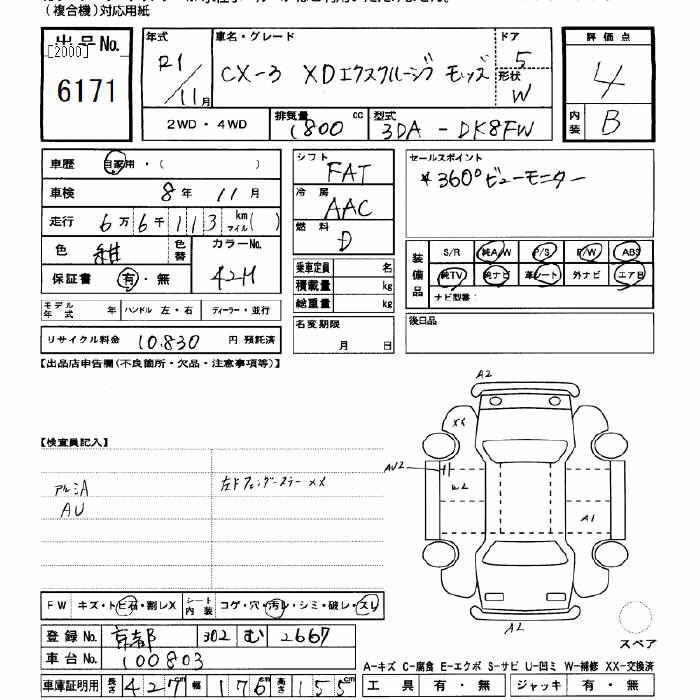 (複合機)対応用紙
出品No.
[2000]
6171
年式
R1/11月
車名・グレード
CX-3 XDエクスクルーシブ モッズ
ドア
5
形状
W
評価点
4
内装
B
2WD・4WD
排気量
1800 cc
型式
3DA-DK8FW
車歴 自家用・( )
車検 8年 11月
走行 6万6千113 km マイル( )
色 紺 色替
カラーNo.
42M
保証書 有・無
モデル年式 年 ハンドル 左・右 ディーラー・並行
リサイクル料金 10.830 円 預託済
シフト
FAT
冷房
AAC
燃料
D
乗車定員 名
積載量 kg
総重量 kg
名変期限
月 日
セールスポイント
*360°ビューモニター
装備品
S/R 純A/W P/S P/W ABS
純TV 純ナビ 革シート 外ナビ エアB
ナビ型番:
後日品
【出品店申告欄(不良箇所・欠品・注意事項等)】
【検査員記入】
アルミA
AU
左Fフェンダーステー XX
A2
XX
AU2
W2
A1
A2
スペア
FW キズ・トビ石・割レX
シート内装 コゲ・穴・汚レ・シミ・破レ・スレ
登録No. 京都 302 む 2667
車台No. 100803
車庫証明用 長さ 427cm 幅 176cm 高さ 155cm
A-キズ C-腐食 E-エクボ S-サビ U-凹ミ W-補修 XX-交換済
工具 有・無 ジャッキ 有・無